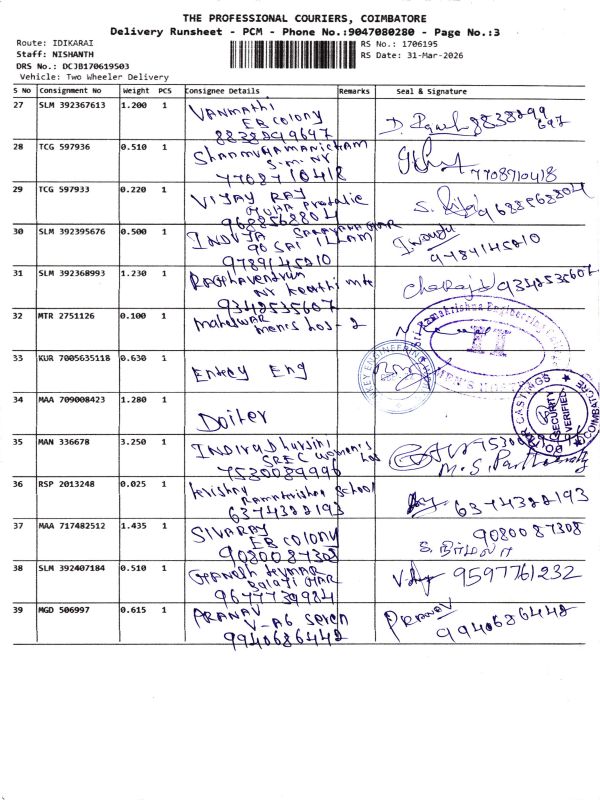 THE PROFESSIONAL COURIERS, COIMBATORE
Delivery Runsheet - PCM - Phone No.:9047080280 - Page No.:3
Route: IDIKARAI
RS No.: 1706195
Staff: NISHANTH
RS Date: 31-Mar-2026
DRS No.: DCJB170619503
Vehicle: Two Wheeler Delivery
S No Consignment No Weight PCS Consignee Details Remarks Seal & Signature
27 SLM 392367613 1.200 1
VANMATHI
EB COLONY
8838299697
28 TCG 597936 0.510 1
7708710418
7708710418
29 TCG 597933 0.220 1
VIJAY RAJ
9688568804
9688568804
30 SLM 392395676 0.500 1
INDUJA
90 SAI ILLAM
9789145210
9789145210
31 SLM 392368993 1.230 1
Raghavendran
9342535607
9342535607
32 MTR 2751126 0.100 1
maheswar
men's hos - 2
Sri Ramakrishna Engineering
MEN'S HOSTEL
33 KUR 7005635118 0.630 1
Enkey Eng
ENKEY ENGINEERING
34 MAA 709008423 1.280 1
Doiter
CASTINGS
SECURITY
VERIFIED
COIMBATORE
35 MAN 336678 3.250 1
INDIRADHARSINI
SREC women's hos
7530089996
36 RSP 2013248 0.025 1
krishna
Ramakrishna School
6374322193
6374322193
37 MAA 717482512 1.435 1
SIVARAJ
EB COLONY
9080087308
9080087308
S. நிர்மலா
38 SLM 392407184 0.510 1
Ganesh kumar
Balaji
9677739984
9597761232
39 MGD 506997 0.615 1
PRANAV
V-A6 Seven
9940686442
PRANAV
9940686442